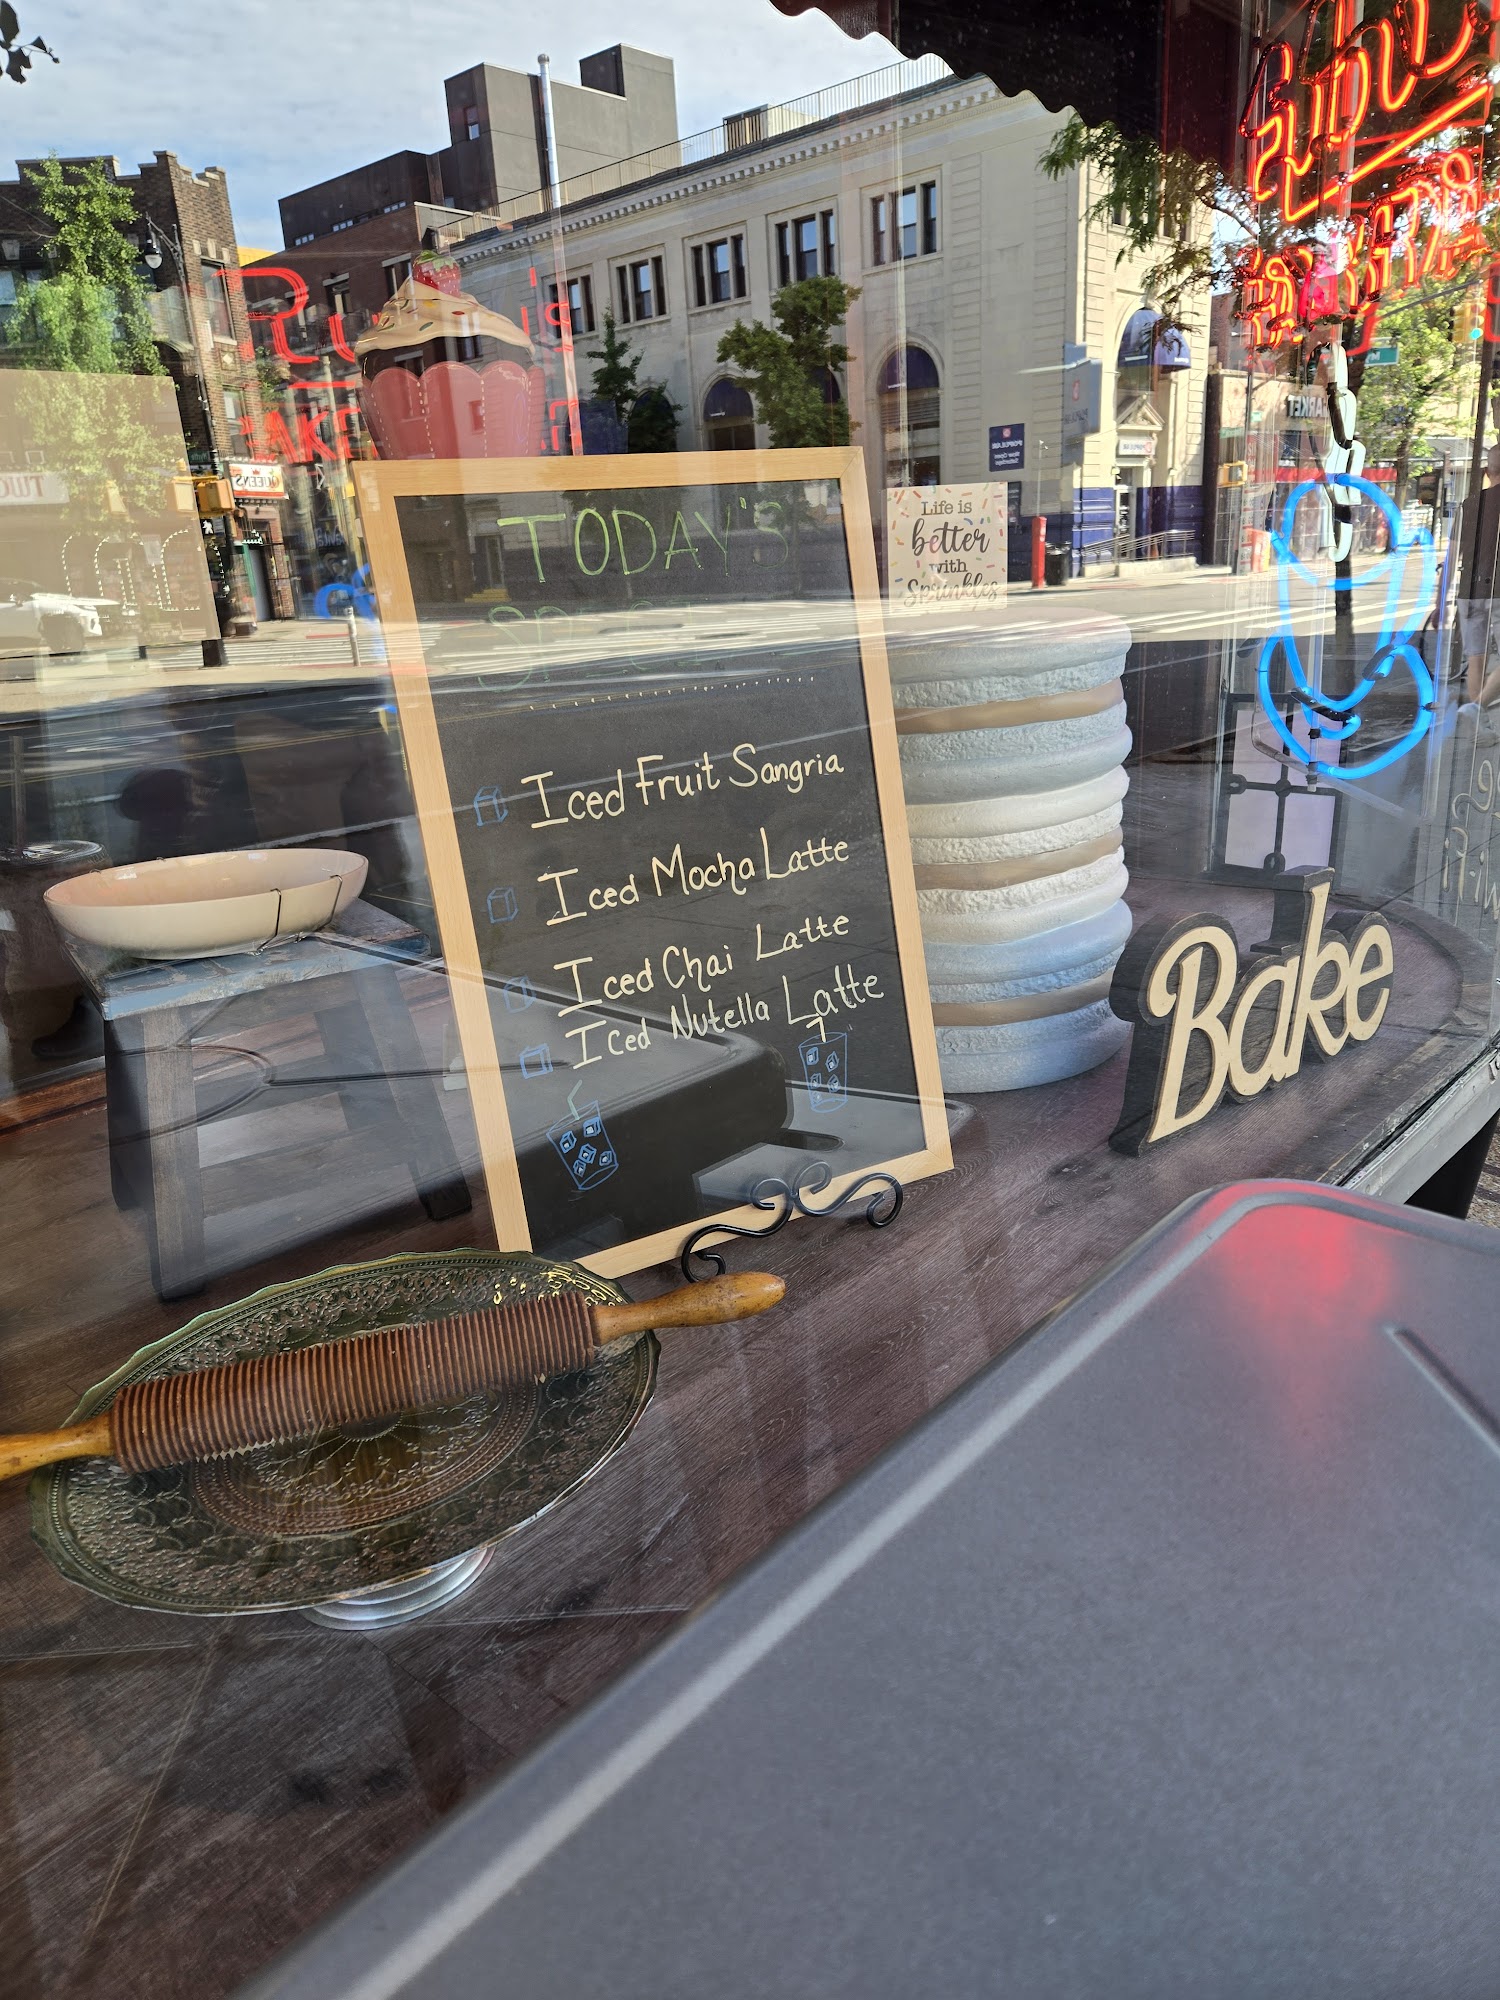 TODAY'S
SPECIAL
Iced Fruit Sangria
Iced Mocha Latte
Iced Chai Latte
Iced Nutella Latte
Life is
better
with
Sprinkles
Bake
QUEENS
POPULAR
MARKET